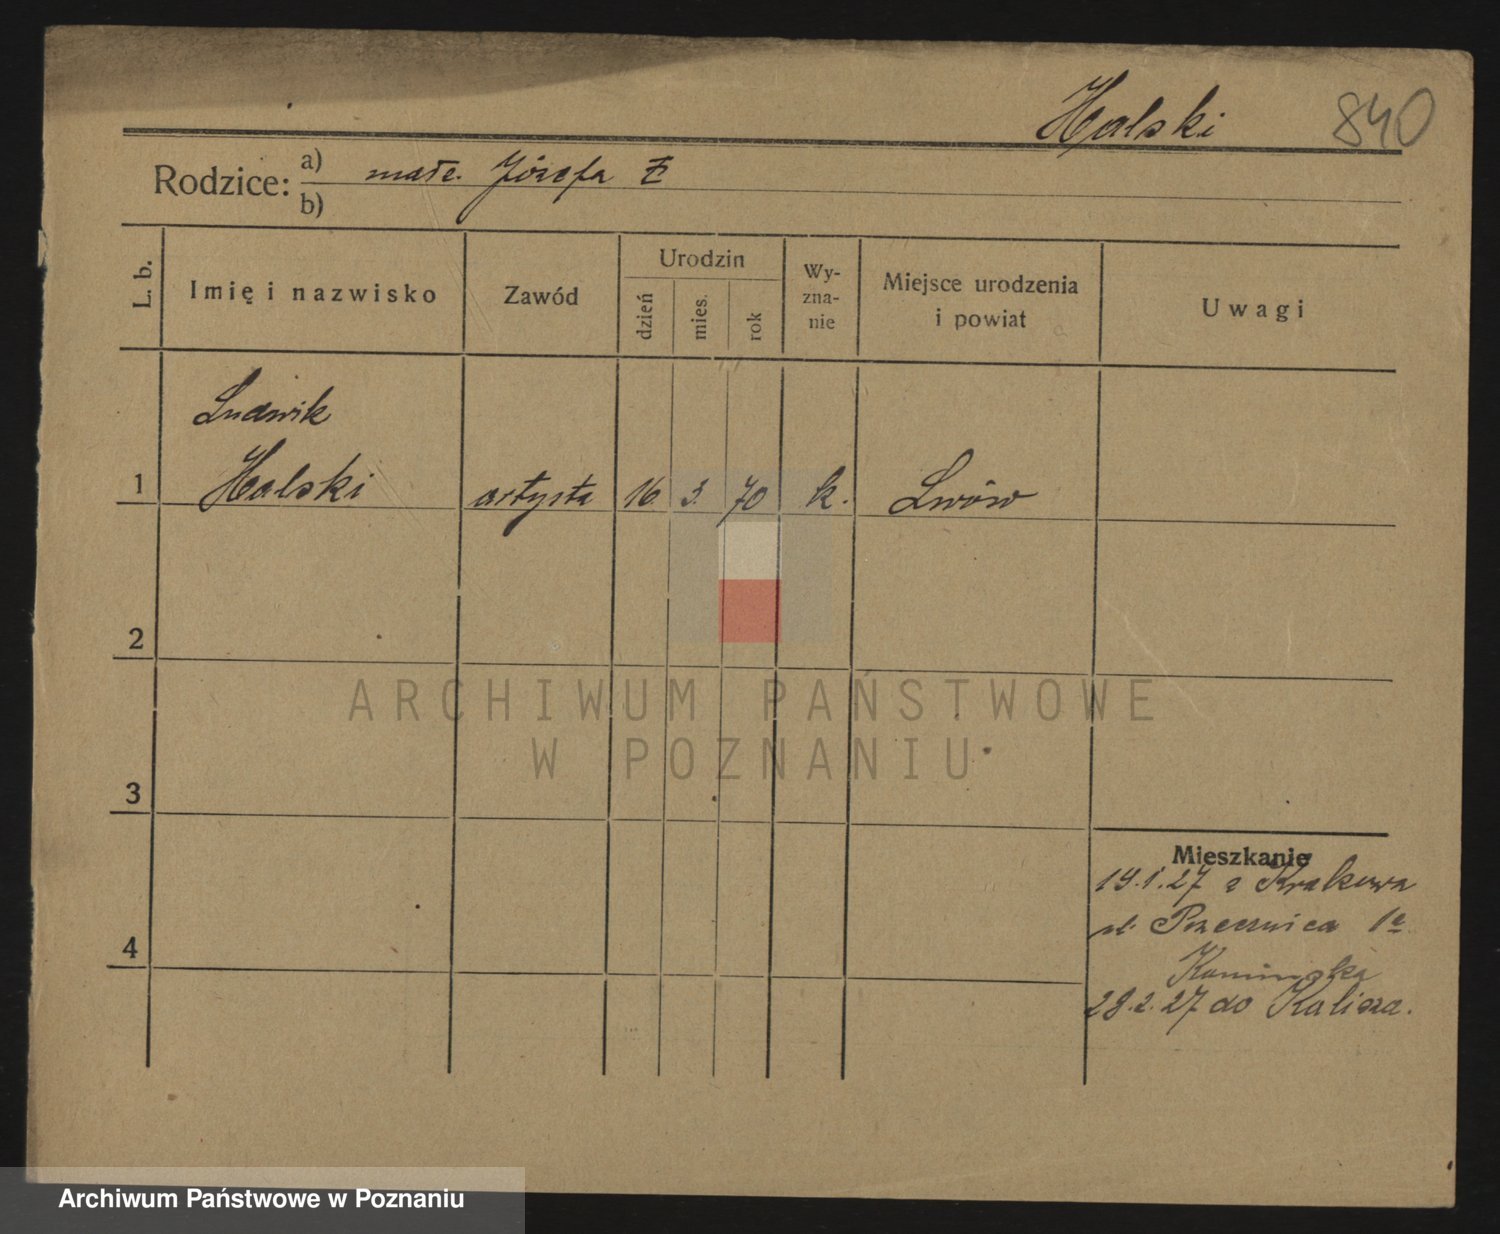 Halski
840
Rodzice:
a) małż. Józefa Ł
b)
L. b.
Imię i nazwisko
Zawód
Urodzin
dzień
mies.
rok
Wy-
zna-
nie
Miejsce urodzenia
i powiat
Uwagi
Ludwik
1 Halski artysta 16 3. 70 k. Lwów
2
ARCHIWUM PAŃSTWOWE
W POZNANIU
3
Mieszkanie
19.1.27 z Krakowa
ul.
4
Kamińska
28.2.27 do Kalisza.
Archiwum Państwowe w Poznaniu